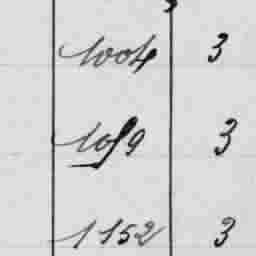 1004 3
1059 3
1152 3